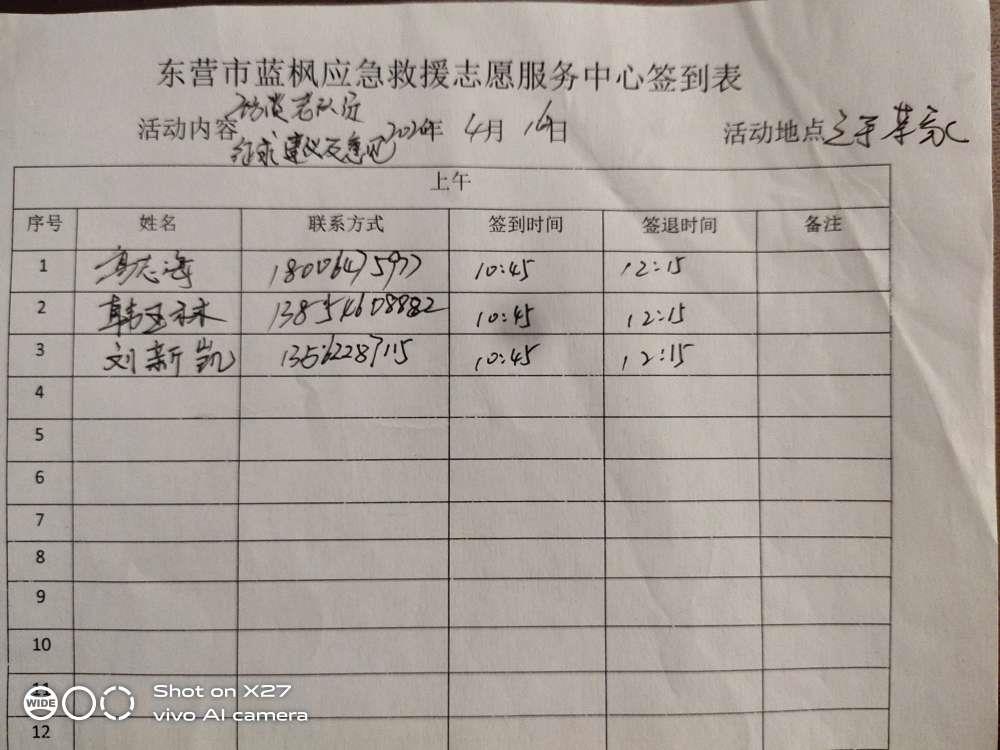 东营市蓝枫应急救援志愿服务中心签到表
访谈老队员
活动内容 征求建议及意见 年 4月 16日 活动地点
上午
序号 姓名 联系方式 签到时间 签退时间 备注
1 志海 18006475977 10:45 12:15
2 韩玉林 13854608882 10:45 12:15
3 刘新凯 13562287115 10:45 12:15
4
5
6
7
8
9
10
11
12
WIDE
Shot on X27
vivo AI camera